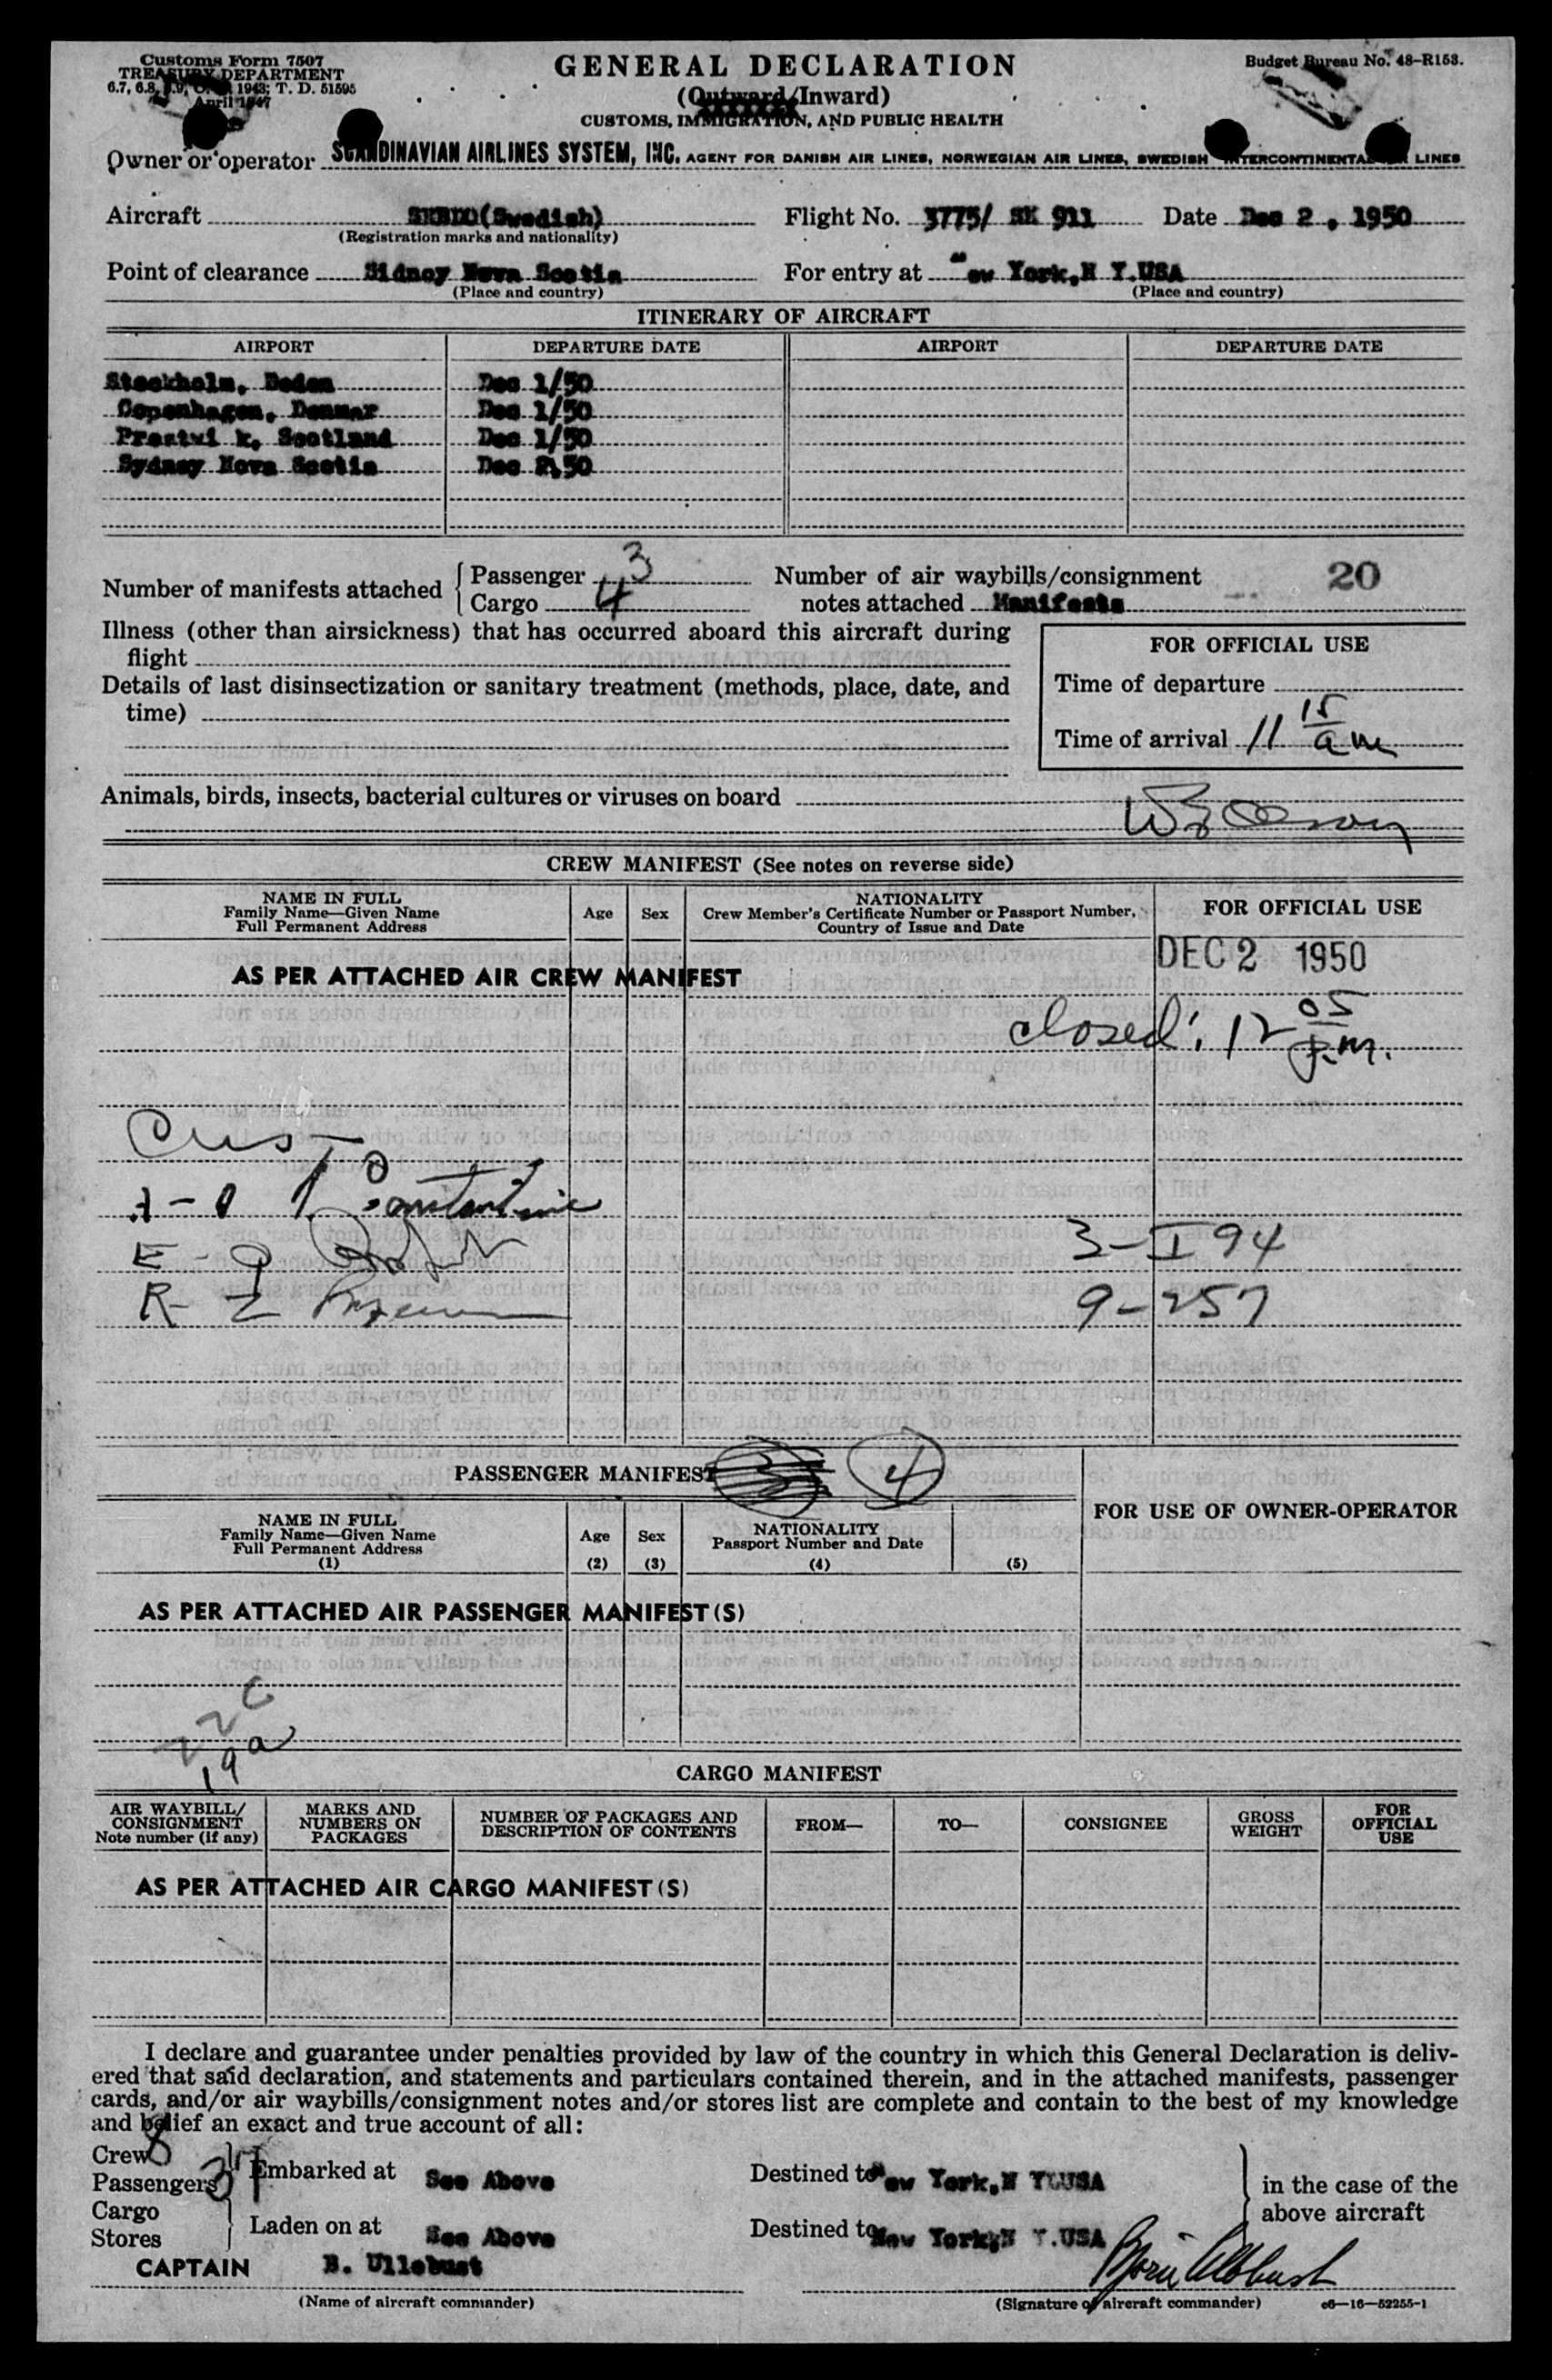 Customs Form 7507
TREASURY DEPARTMENT
6.7, 6.8, 6.9, 1943; T. D. 51595
April 1947
GENERAL DECLARATION
(Outward/Inward)
CUSTOMS, IMMIGRATION, AND PUBLIC HEALTH
Budget Bureau No. 48-R153.
Owner or operator SCANDINAVIAN AIRLINES SYSTEM, INC. AGENT FOR DANISH AIR LINES, NORWEGIAN AIR LINES, SWEDISH INTERCONTINENTAL AIR LINES
Aircraft (Swedish) Flight No. 3775/ SK 911 Date Dec 2, 1950
(Registration marks and nationality)
Point of clearance Sidney Nova Scotia For entry at ew York, N Y.USA
(Place and country) (Place and country)
ITINERARY OF AIRCRAFT
AIRPORT DEPARTURE DATE AIRPORT DEPARTURE DATE
Stockholm, Dec 1/50
Copenhagen, Denmar Dec 1/50
Prestwi k, Scotland Dec 1/50
Sydney Nova Scotia Dec 2,50
Number of manifests attached { Passenger 3
Cargo 4
Number of air waybills/consignment notes attached Manifests 20
Illness (other than airsickness) that has occurred aboard this aircraft during flight
Details of last disinsectization or sanitary treatment (methods, place, date, and time)
FOR OFFICIAL USE
Time of departure
Time of arrival 11 15 am
Animals, birds, insects, bacterial cultures or viruses on board
CREW MANIFEST (See notes on reverse side)
NAME IN FULL
Family Name—Given Name
Full Permanent Address
Age Sex
NATIONALITY
Crew Member's Certificate Number or Passport Number,
Country of Issue and Date
FOR OFFICIAL USE
AS PER ATTACHED AIR CREW MANIFEST
DEC 2 1950
closed: 12 05 p.m.
Cus
Constantine
E - 3-I94
R- 9-257
PASSENGER MANIFEST 4
NAME IN FULL
Family Name—Given Name
Full Permanent Address
(1)
Age
(2)
Sex
(3)
NATIONALITY
Passport Number and Date
(4)
(5)
FOR USE OF OWNER-OPERATOR
AS PER ATTACHED AIR PASSENGER MANIFEST(S)
22 C
19 a
CARGO MANIFEST
AIR WAYBILL/
CONSIGNMENT
Note number (if any)
MARKS AND
NUMBERS ON
PACKAGES
NUMBER OF PACKAGES AND
DESCRIPTION OF CONTENTS
FROM—
TO—
CONSIGNEE
GROSS
WEIGHT
FOR
OFFICIAL
USE
AS PER ATTACHED AIR CARGO MANIFEST(S)
I declare and guarantee under penalties provided by law of the country in which this General Declaration is deliv-
ered that said declaration, and statements and particulars contained therein, and in the attached manifests, passenger
cards, and/or air waybills/consignment notes and/or stores list are complete and contain to the best of my knowledge
and belief an exact and true account of all:
Crew 8
Passengers
Embarked at See Above Destined to ew York, N Y USA
Cargo
Stores
Laden on at See Above Destined to New York, N Y.USA
in the case of the
above aircraft
CAPTAIN B. Ullebust Bjorn Ullebust
(Name of aircraft commander) (Signature of aircraft commander) c6—16—52255-1